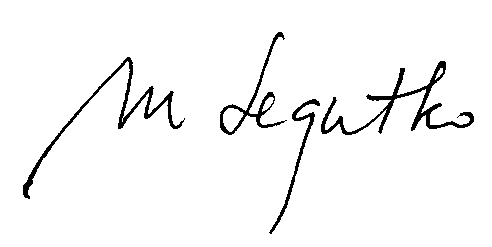 M Legutko